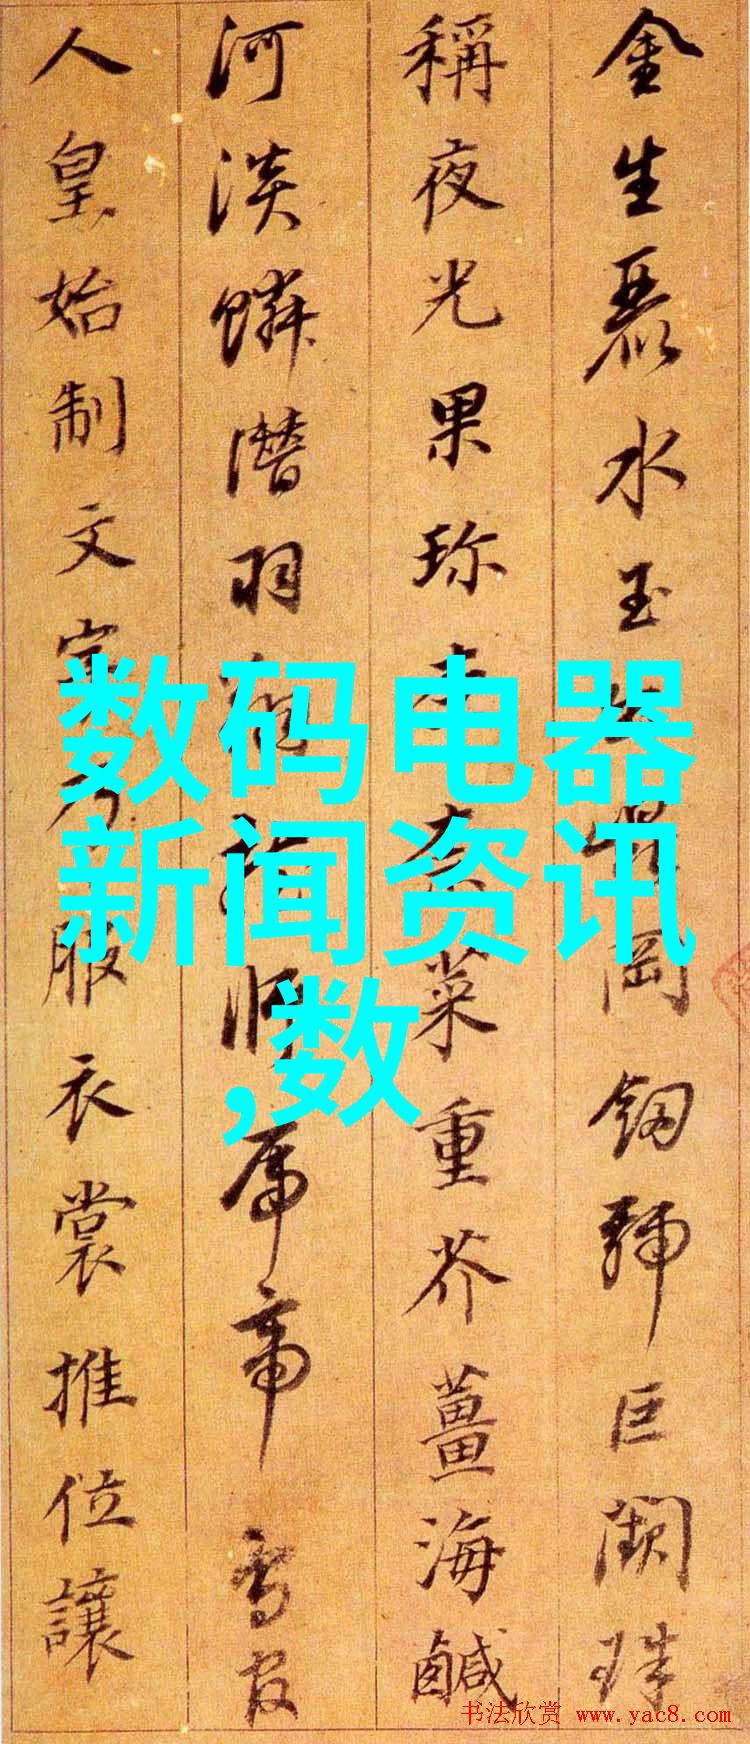 金生麗水玉出崑岡劒號巨闕珠
稱夜光果珍李柰菜重芥薑海鹹
河淡鱗潛羽翔龍師帝鳥官
人皇始制文字乃服衣裳推位讓
数码电器
新闻资讯
,数
书法欣赏 www.yac8.com